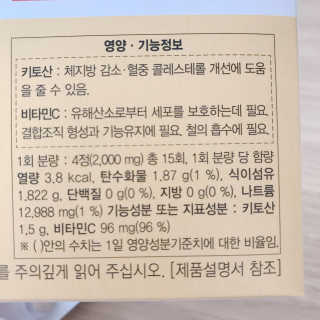 영양 · 기능정보
키토산 : 체지방 감소·혈중 콜레스테롤 개선에 도움
을 줄 수 있음.
비타민C : 유해산소로부터 세포를 보호하는데 필요.
결합조직 형성과 기능유지에 필요. 철의 흡수에 필요.
1회 분량 : 4정(2,000 mg) 총 15회, 1회 분량 당 함량
열량 3.8 kcal, 탄수화물 1.87 g(1 %), 식이섬유
1,822 g, 단백질 0 g(0 %), 지방 0 g(0 %), 나트륨
12,988 mg(1 %) 기능성분 또는 지표성분 : 키토산
1.5 g, 비타민C 96 mg(96 %)
※ ( )안의 수치는 1일 영양성분기준치에 대한 비율임.
를 주의깊게 읽어 주십시오. [제품설명서 참조]